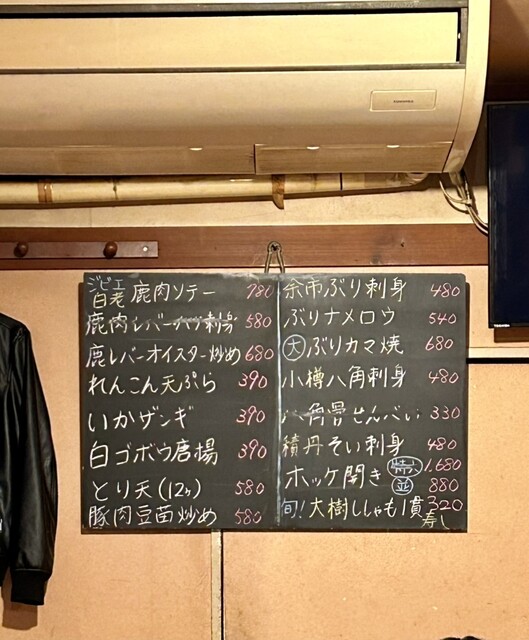 TOSHIBA
ジビエ
白老 鹿肉ソテー 780
鹿肉レバーハツ刺身 580
鹿レバーオイスター炒め 680
れんこん天ぷら 390
いかザンギ 390
白ゴボウ唐揚 390
とり天(12ヶ) 580
豚肉豆苗炒め 580
余市ぶり刺身 480
ぶりナメロウ 540
大 ぶりカマ焼 680
小樽八角刺身 480
八角骨せんべい 330
積丹そい刺身 480
ホッケ開き 特大 1.680
並 880
旬!大樹ししゃも1貫 320
寿し